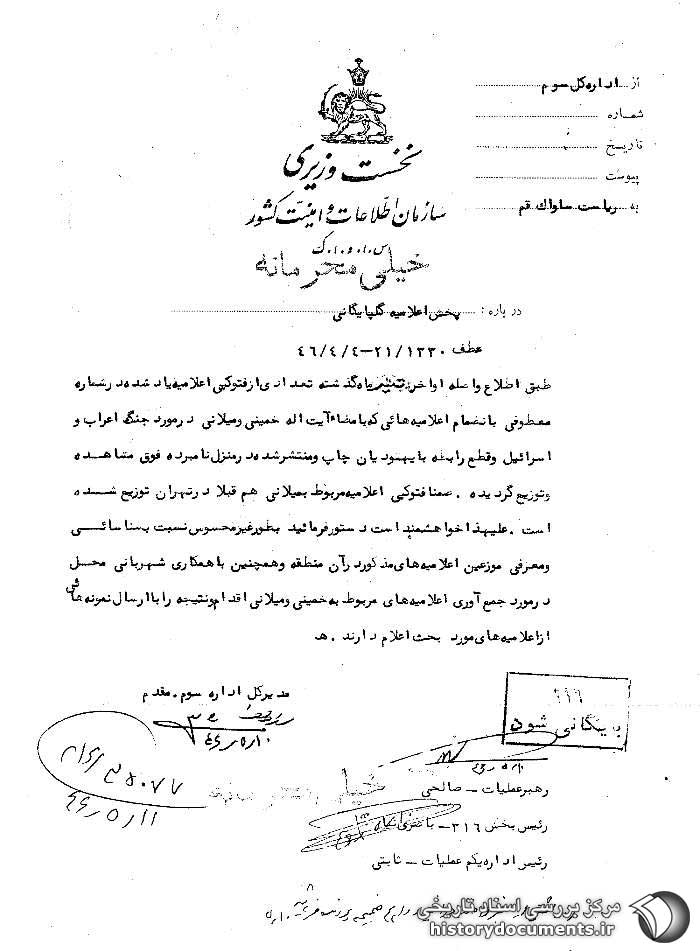 از اداره کل سوم
شماره
تاریخ
پیوست
به ریاست ساواک قم
نخست وزیری
سازمان اطلاعات و امنیت کشور
س.ا.و.ا.ک
خیلی محرمانه
درباره : پخش اعلامیه گلپایگانی
عطف ۲۱/۱۳۳۰–۴۶/۴/۴
طبق اطلاع واصله اواخر تیر ماه گذشته تعدادی از فتوکپی اعلامیه یاد شده در شماره
معطوفی بانضمام اعلامیه هائی که بامضاء آیت اله خمینی و میلانی در مورد جنگ اعراب و
اسرائیل و قطع رابطه با یهودیان چاپ و منتشر شده در منزل نامبرده فوق مشاهده
و توزیع گردیده . ضمنا فتوکپی اعلامیه مربوط بمیلانی هم قبلا در تهران توزیع شده
است . علیهذا خواهشمند است دستور فرمائید بطور غیر محسوس نسبت بشناسائی
و معرفی موزعین اعلامیه های مذکور در آن منطقه و همچنین با همکاری شهربانی محل
در مورد جمع آوری اعلامیه های مربوط به خمینی و میلانی اقدام و نتیجه را با ارسال نمونه هائی
از اعلامیه های مورد بحث اعلام دارند . هـ
مدیر کل اداره سوم . مقدم
۳۱۶
بایگانی شود
خیلی محرمانه
رهبر عملیات – صالحی
رئیس بخش ۳۱۶ –
رئیس اداره یکم عملیات – ثابتی
مرکز بررسی اسناد تاریخی
historydocuments.ir